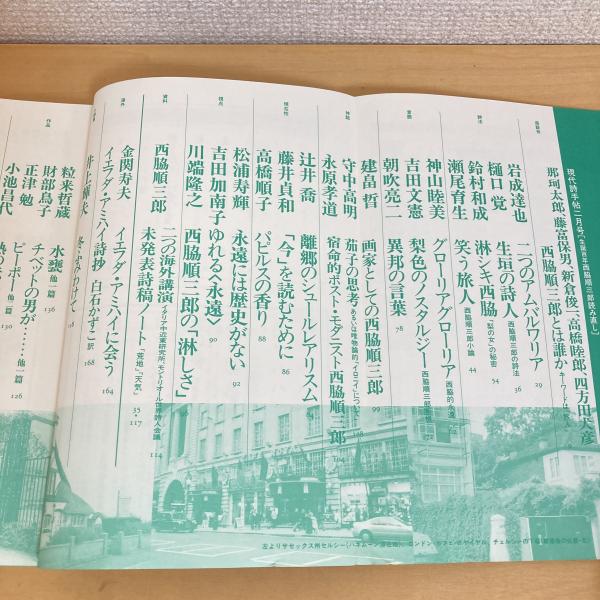 現代詩手帖二月号[生誕百年西脇順三郎読み直し]
座談会
那珂太郎、藤富保男、新倉俊一、高橋睦郎、四方田犬彦
西脇順三郎とは誰か
岩成達也 二つのアムバルワリア 29
詩法
樋口覚 生垣の詩人 西脇順三郎の詩法 36
鈴村和成 淋シキ西脇 「梨の女」の秘密 54
瀬尾育生 笑う旅人 西脇順三郎小論 44
神山睦美 グローリアグローリア 西脇的永遠
吉田文憲 梨色のノスタルジー 西脇順三郎
朝吹亮二 異邦の言葉 78
建畠晢 画家としての西脇順三郎 99
守中高明 茄子の思考 あるいは唯物論的「イロニイ」について
永原孝道 宿命的ポスト・モダニスト西脇順三郎 104
辻井喬 離郷のシュールレアリスム
藤井貞和 「今」を読むために 86
高橋順子 パピルスの香り 88
松浦寿輝 永遠には歴史がない 92
視点
吉田加南子 ゆれる〈永遠〉 90
川端隆之 西脇順三郎の「淋しさ」
資料
西脇順三郎 二つの海外講演 イタリア中近東研究所、モントリオール世界詩人会議 114
未発表詩稿ノート 「荒地」、「天気」 35・117
海外
金関寿夫 イエフダ・アミハイに会う 164
イエフダ・アミハイ詩抄 白石かずこ訳 168
井上輝夫 冬ふみわけて
作品
粒来哲蔵 水甕 他一篇 136
財部鳥子 チベットの男が…… 他一篇 126
正津勉 ピーポー 他一篇 130
小池昌代